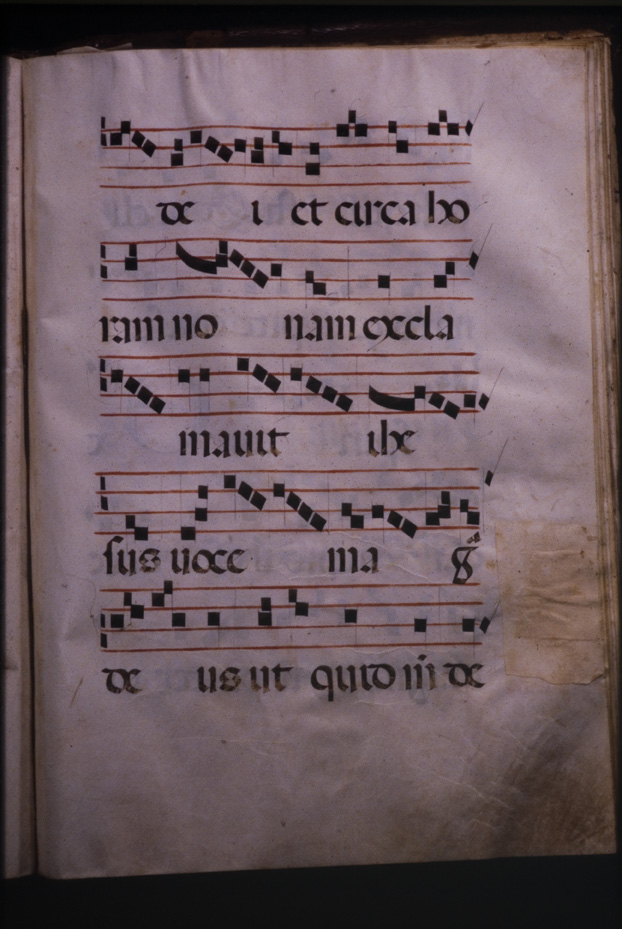 de i et circa ho
ram no nam excla
mauit ihe
sus uoce ma gᵃ
de us ut quid m̄ de